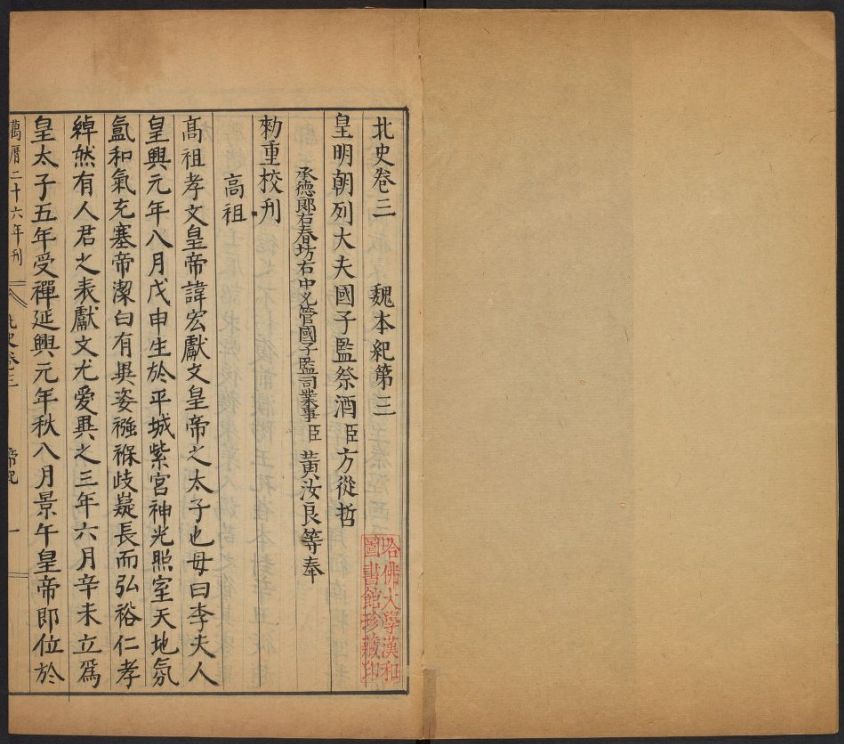 北史卷三 魏本紀第三
皇明朝列大夫國子監祭酒臣方從哲
承德郞右春坊右中允管國子監司業事臣黃汝良等奉
勑重校刋
高祖
高祖孝文皇帝諱宏獻文皇帝之太子也母曰李夫人
皇興元年八月戊申生於平城紫宮神光照室天地氛
氳和氣充塞帝潔白有異姿襁褓岐嶷長而弘裕仁孝
綽然有人君之表獻文尤愛異之三年六月辛未立爲
皇太子五年受禪延興元年秋八月景午皇帝即位於
萬曆二十六年刋
北史卷三
帝紀
一
哈佛大學漢和
圖書館珍藏印